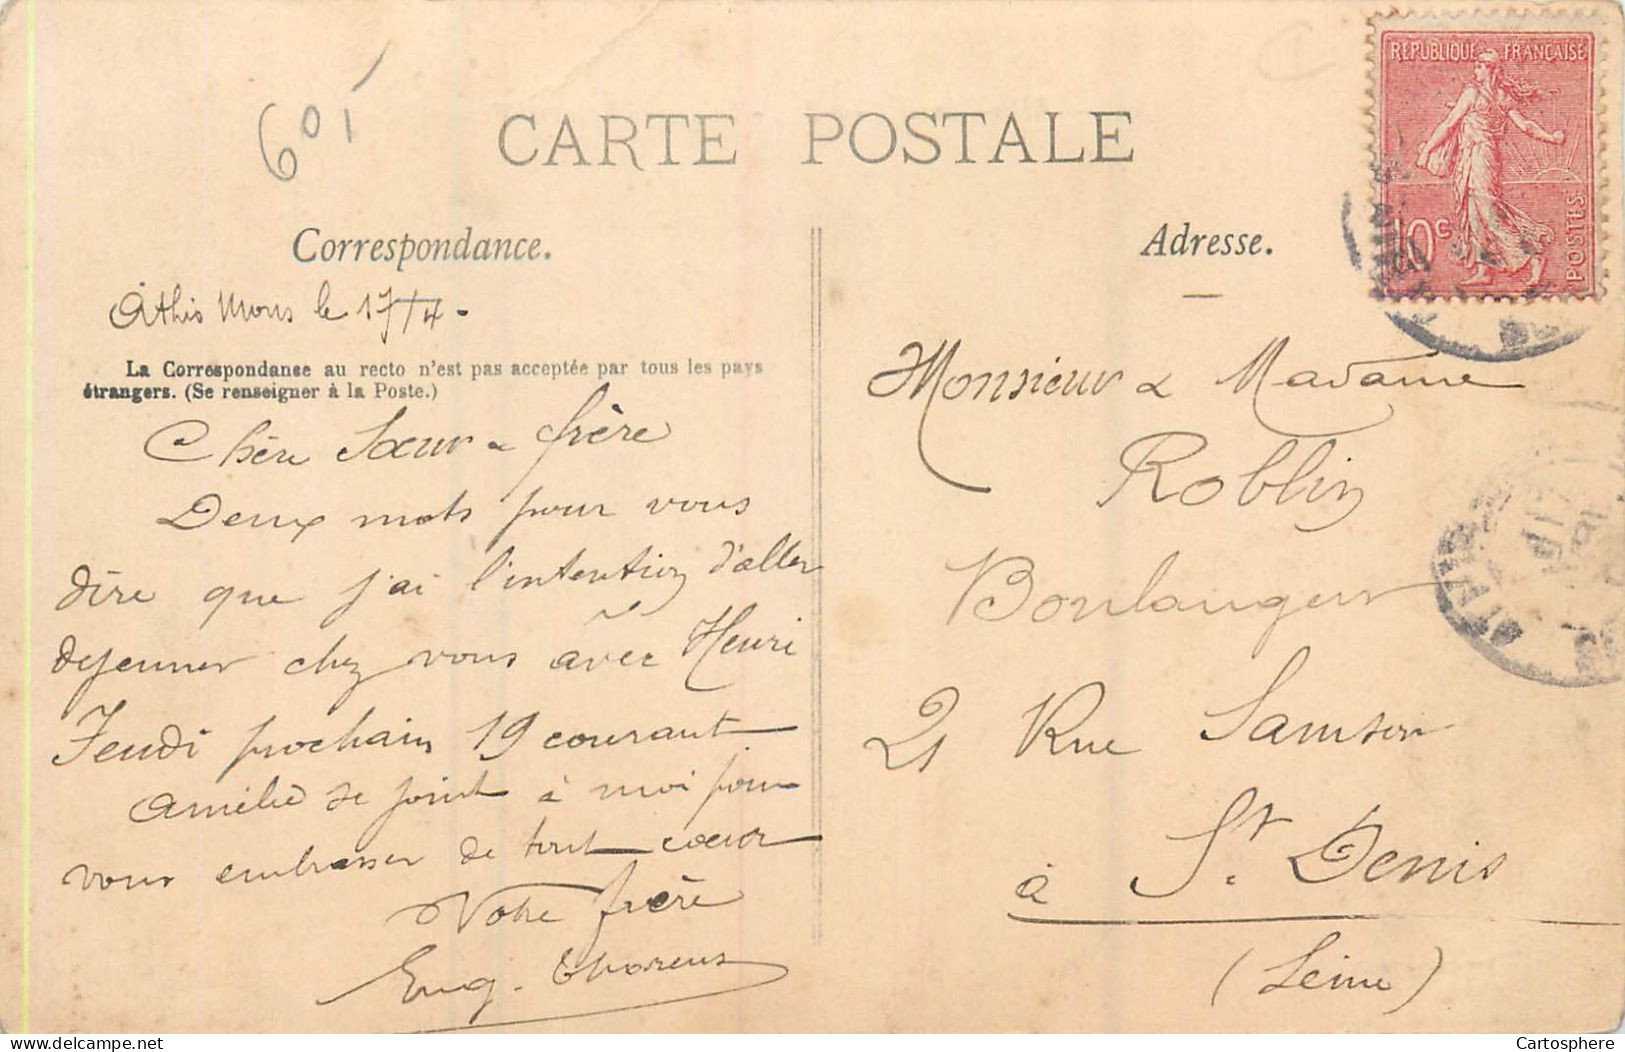 601
CARTE POSTALE
REPUBLIQUE FRANÇAISE
10c
POSTES
Correspondance.
Athis Mons le 17/4.
La Correspondanse au recto n'est pas acceptée par tous les pays
étrangers. (Se renseigner à la Poste.)
Chère Sœur & frère
Deux mots pour vous
dire que j'ai l'intention d'aller
dejeuner chez vous avec Henri
Jeudi prochain 19 courant
Amélie se joint à moi pour
vous embrasser de tout cœur
Votre frère
Eug.
Adresse.
Monsieur & Madame
Roblin
Boulanger
21 Rue Samson
à St. Denis
(Seine)
delcampe.net
Cartosphere